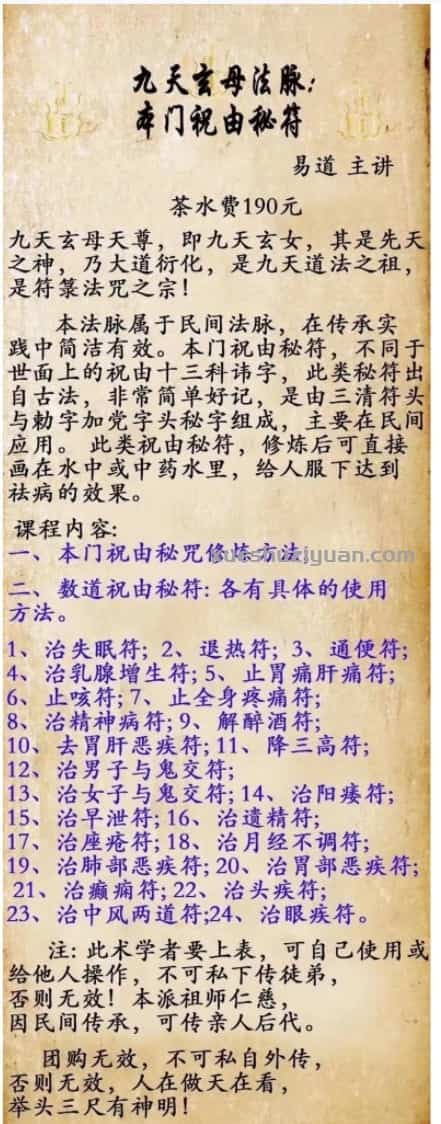 九天玄母法脉:
本门祝由秘符
易道 主讲
茶水费190元
九天玄母天尊，即九天玄女，其是先天
之神，乃大道衍化，是九天道法之祖，
是符箓法咒之宗！
本法脉属于民间法脉，在传承实
践中简洁有效。本门祝由秘符，不同于
世面上的祝由十三科讳字，此类秘符出
自古法，非常简单好记，是由三清符头
与勅字加党字头秘字组成，主要在民间
应用。此类祝由秘符，修炼后可直接
画在水中或中药水里，给人服下达到
祛病的效果。
课程内容:
一、本门祝由秘咒修炼方法。
二、数道祝由秘符: 各有具体的使用
方法。
1、治失眠符; 2、退热符; 3、通便符;
4、治乳腺增生符; 5、止胃痛肝痛符;
6、止咳符; 7、止全身疼痛符;
8、治精神病符; 9、解醉酒符;
10、去胃肝恶疾符; 11、降三高符;
12、治男子与鬼交符;
13、治女子与鬼交符; 14、治阳痿符;
15、治早泄符; 16、治遗精符;
17、治座疮符; 18、治月经不调符;
19、治肺部恶疾符; 20、治胃部恶疾符;
21、治癫痫符; 22、治头疾符;
23、治中风两道符;24、治眼疾符。
注: 此术学者要上表，可自己使用或
给他人操作，不可私下传徒弟，
否则无效！本派祖师仁慈，
因民间传承，可传亲人后代。
团购无效，不可私自外传，
否则无效，人在做天在看，
举头三尺有神明！